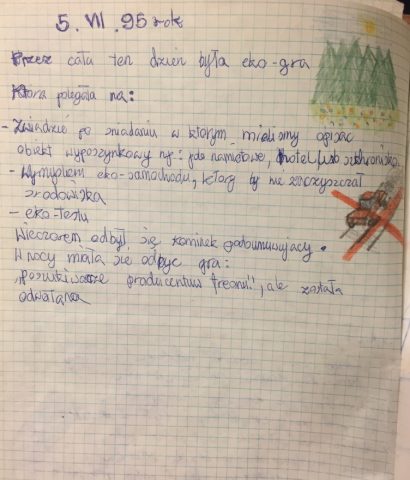 5. VII .95 rok
Przez cała ten dzień była eko-gra
Która polegała na:
- Zwiadzie po śniadaniu w którym mieliśmy opisac
obiekt wyposzynkowy np: pole namiotowe, hotel lub schronisko.
- Wymyślem eko-samochodu, ktory by nie zaczyszczał
środowiska
- eko-testu
Wieczorem odbył się kominek podsumowujacy.
W nocy miała się odbyc gra:
"Poszukiwanie producentów freonu", ale została
odwołana